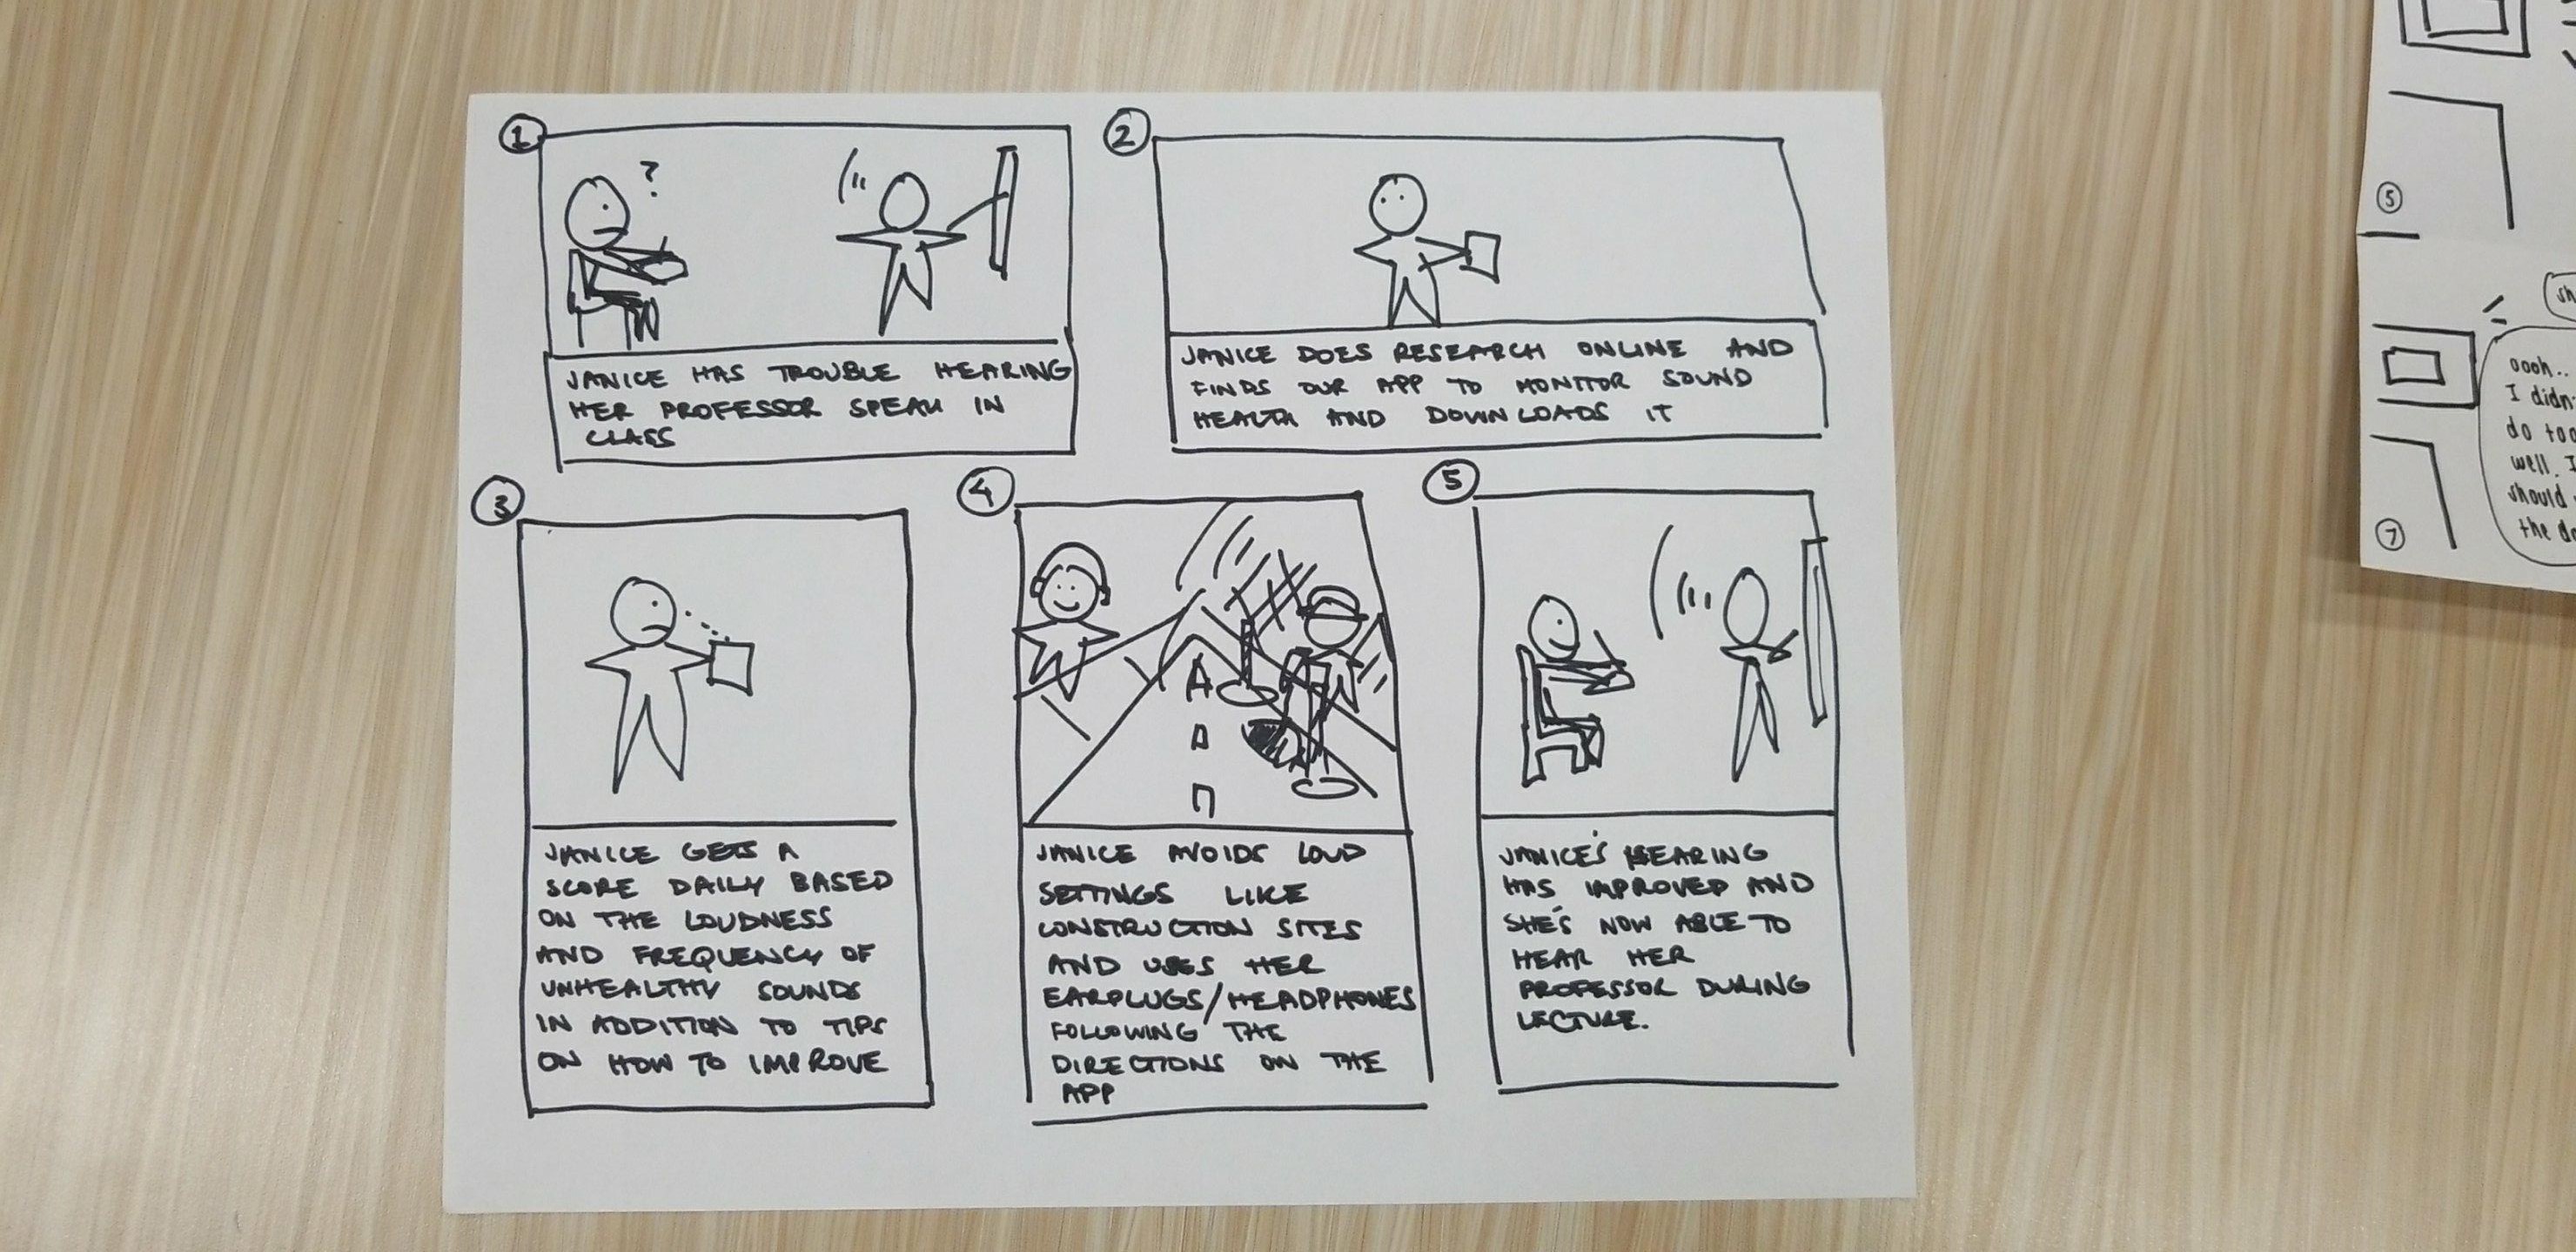 1
?
JANICE HAS TROUBLE HEARING
HER PROFESSOR SPEAK IN
CLASS
2
JANICE DOES RESEARCH ONLINE AND
FINDS OUR APP TO MONITOR SOUND
HEALTH AND DOWNLOADS IT
3
JANICE GETS A
SCORE DAILY BASED
ON THE LOUDNESS
AND FREQUENCY OF
UNHEALTHY SOUNDS
IN ADDITION TO TIPS
ON HOW TO IMPROVE
4
JANICE AVOIDS LOUD
SETTINGS LIKE
CONSTRUCTION SITES
AND USES HER
EARPLUGS/HEADPHONES
FOLLOWING THE
DIRECTIONS ON THE
APP
5
JANICE'S HEARING
HAS IMPROVED AND
SHE'S NOW ABLE TO
HEAR HER
PROFESSOR DURING
LECTURE.
5
oooh..
I didn
do too
well. I
should
the
7